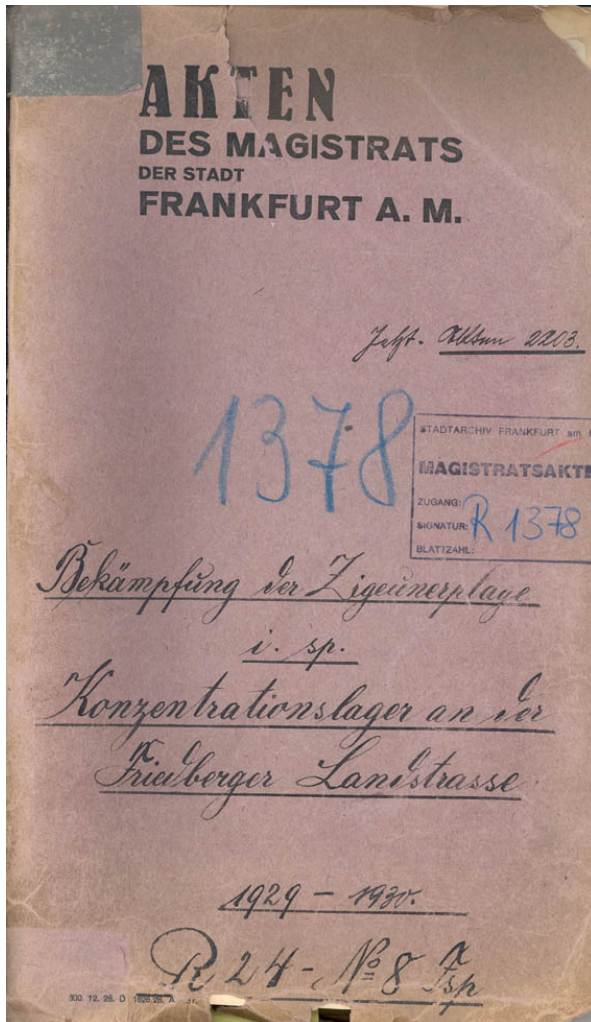 AKTEN
DES MAGISTRATS
DER STADT
FRANKFURT A. M.
Jetzt. Akten 2203.
1378
STADTARCHIV FRANKFURT am
MAGISTRATSAKTE
ZUGANG:
SIGNATUR: R 1378
BLATTZAHL:
Bekämpfung der Zigeunerplage
i. sp.
Konzentrationslager an der
Friedberger Landstrasse
1929 - 1930.
R 24 - № 8
300. 12. 28. D